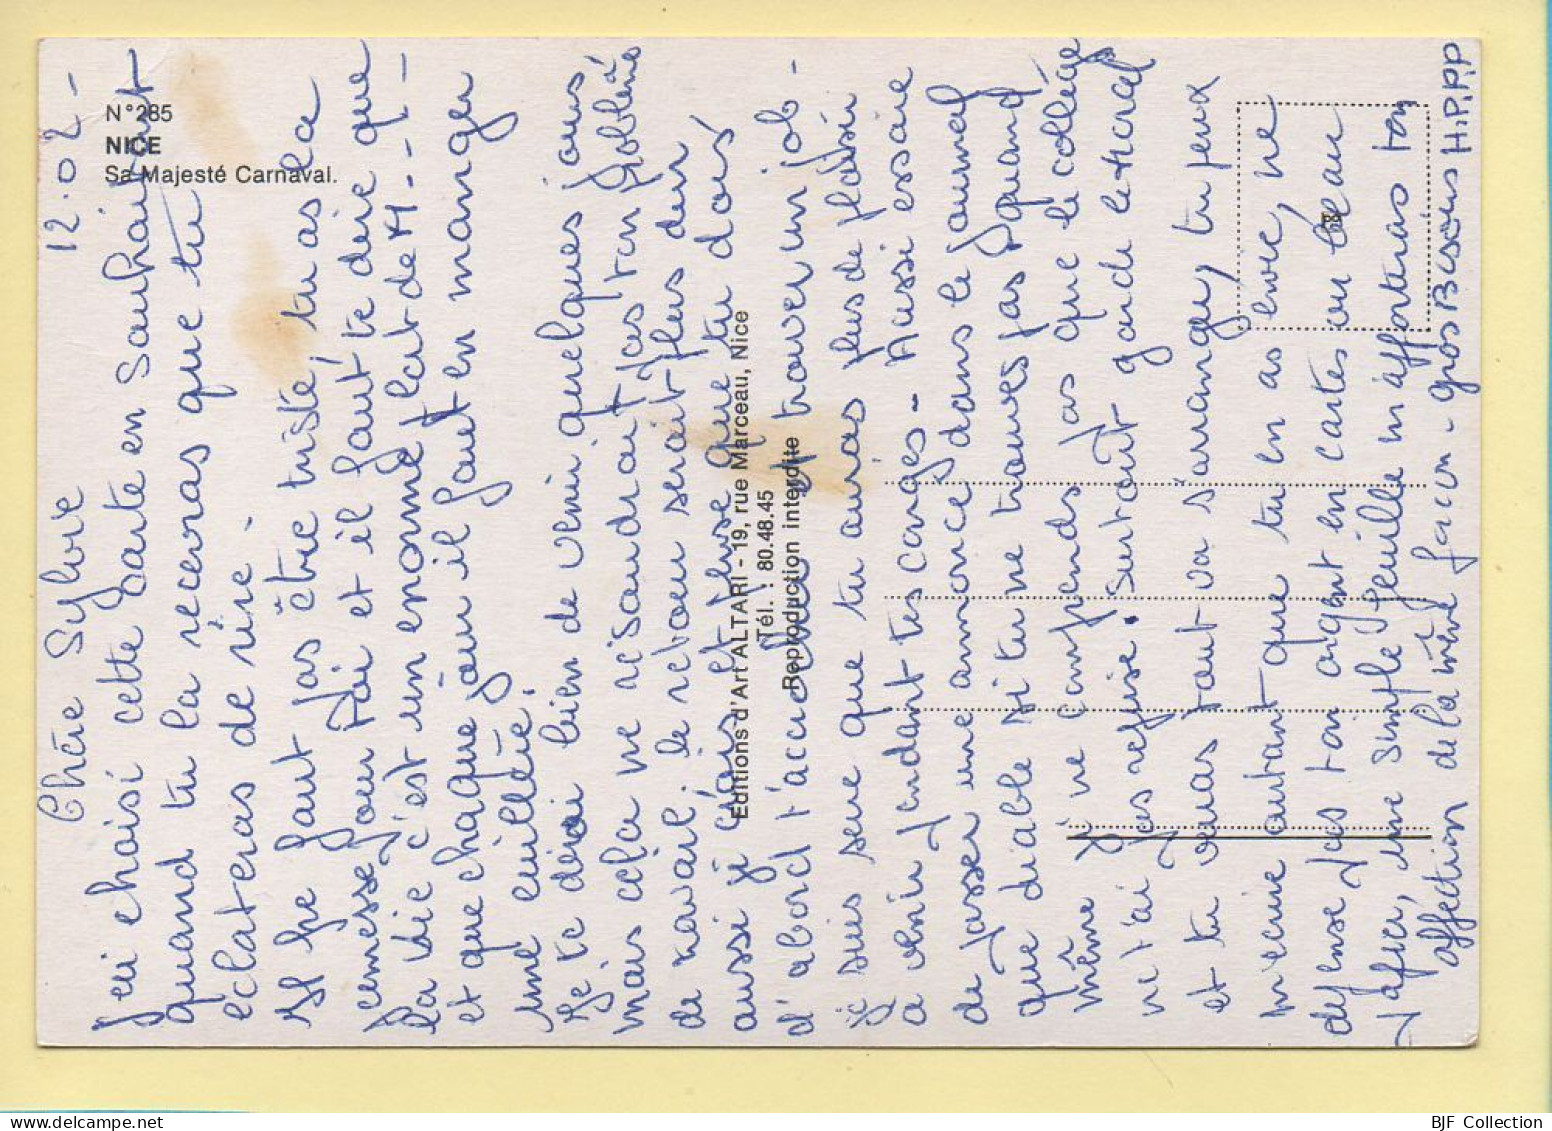 N°285
NICE
Sa Majesté Carnaval.
12.02-
Chère Sylvie
j'ai choisi cette carte en souhaitant
quand tu la recevras que tu
éclateras de rire -
Il ne faut pas être triste, tu as la
jeunesse pour toi et il faut te dire que
la vie c'est un énorme plat de M - - I -
et que chaque jour il faut en manger
une cuillée.
Je te dirai bien de venir quelques jours
mais cela ne résoudrait pas ton problème
de travail. le retour serait plus dur
aussi je crois et pense que tu dois
d'abord t'accrocher et trouver un job -
je suis sure que tu auras plus de plaisir
a venir pendant tes congés - Aussi essaie
de passer une annonce dans le journal
que diable si tu ne trouves pas quand
même je ne comprends pas que le collège
ne t'ai pas reprise. Surtout garde le moral
et tu verras tout va s'arranger, tu peux
m'ecrire autant que tu en as envie, ne
dépense pas ton argent en cartes ou beau
papier, une simple feuille m'apporterais ton
affection de la même facon - gros Bisous H.P.P.P
Editions d'Art ALTARI - 19, rue Marceau, Nice
Tél. : 80.48.45
Reproduction interdite
BJF Collection